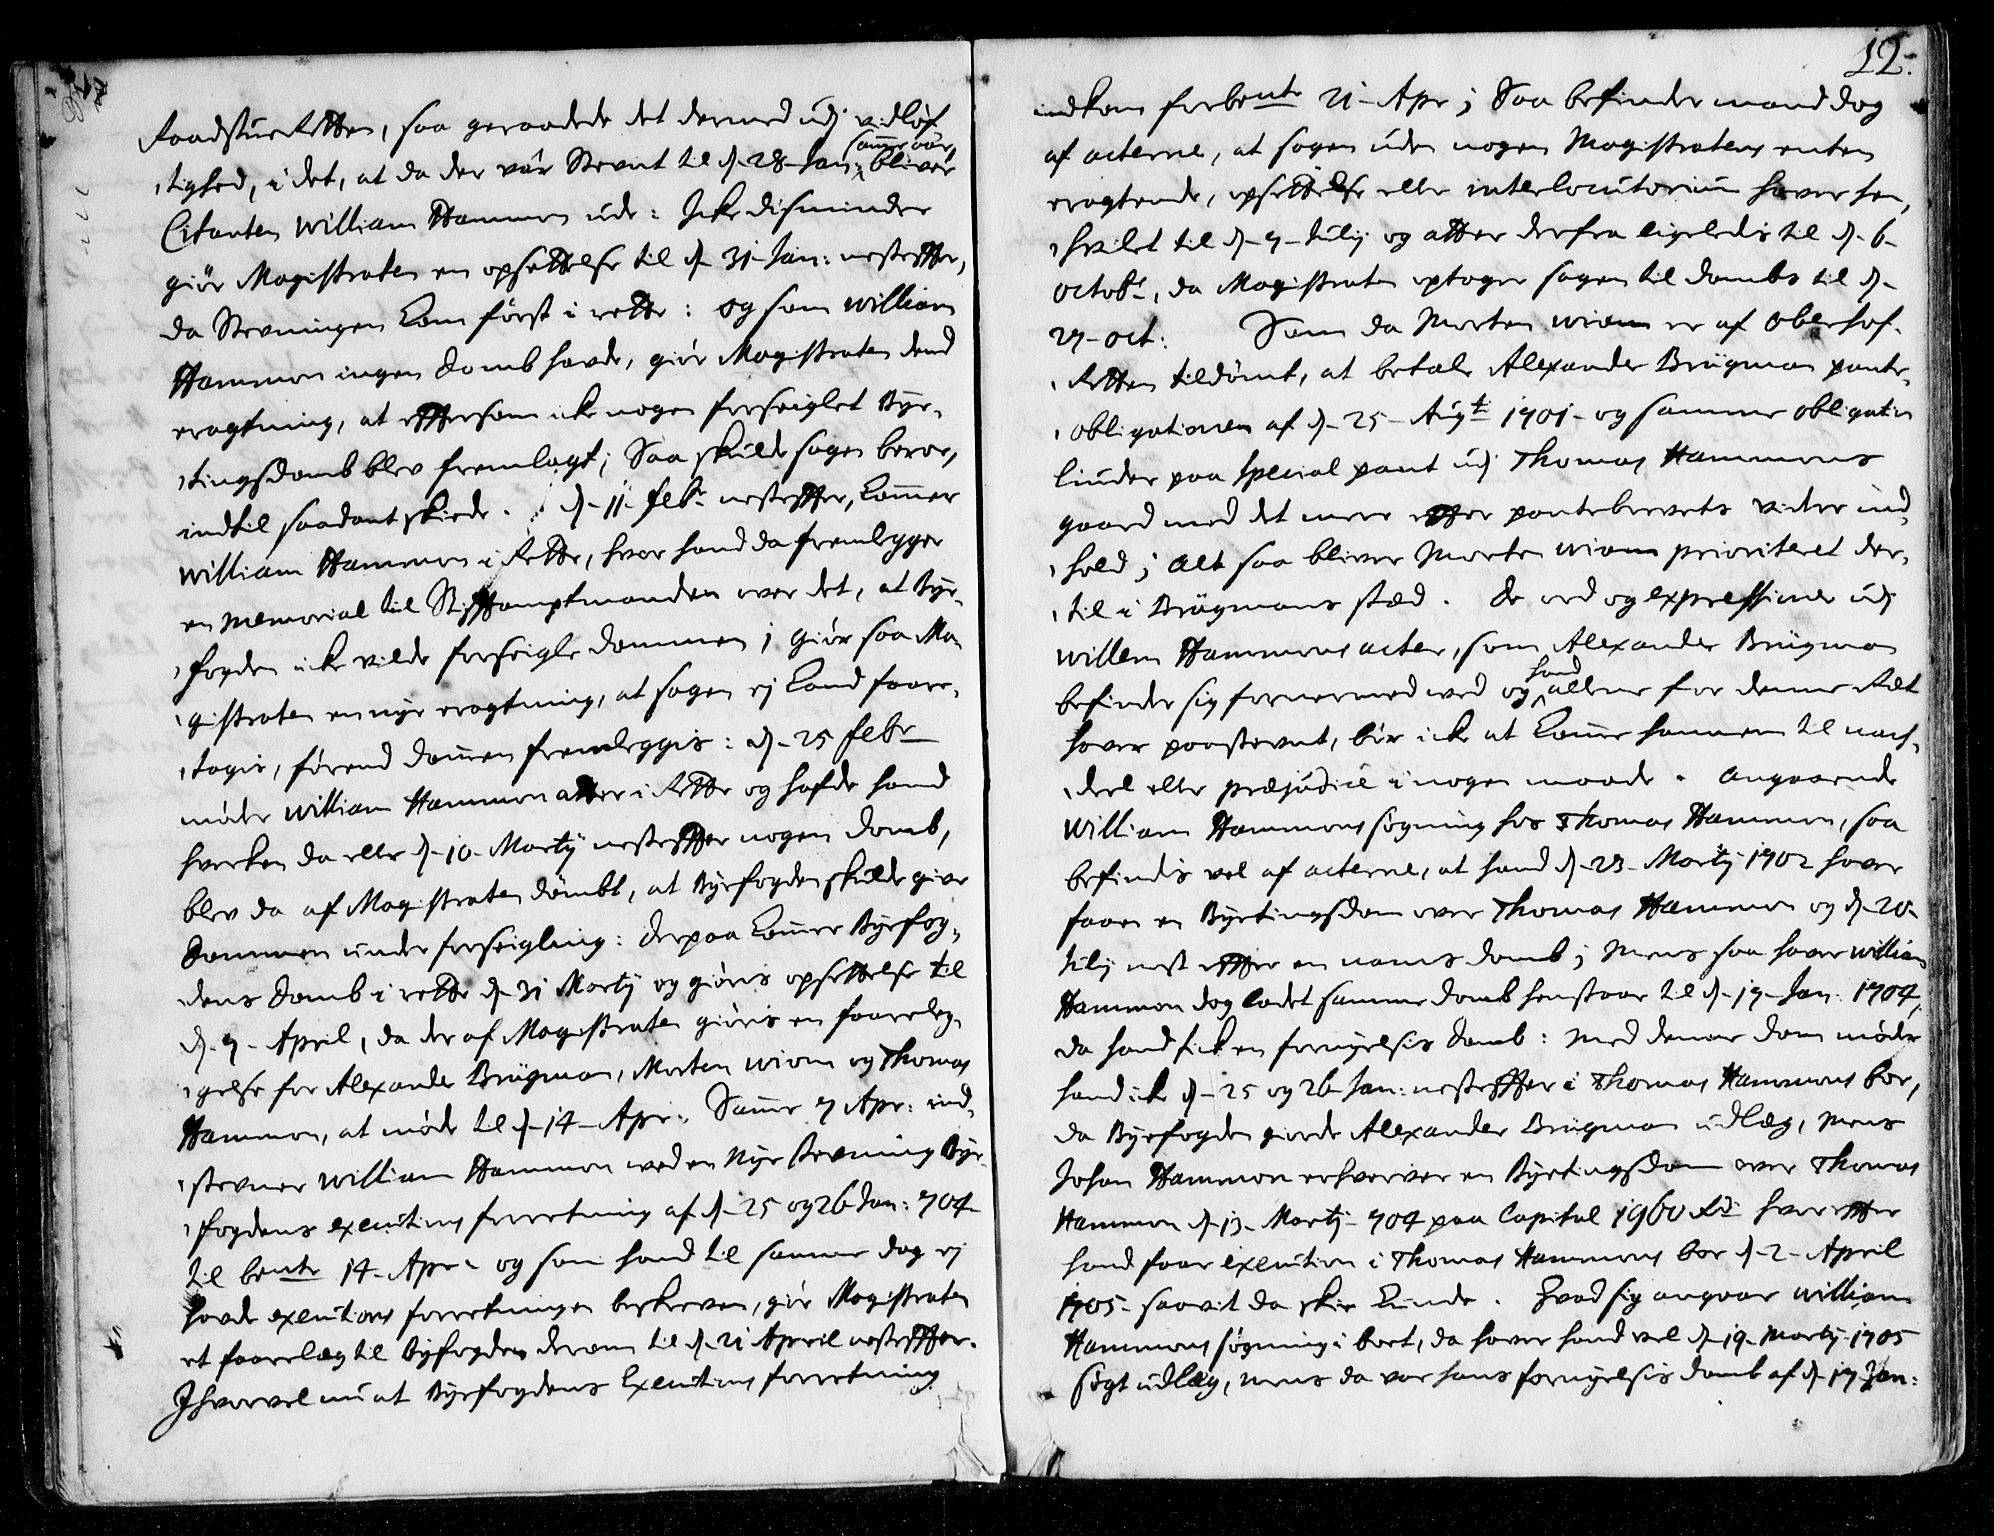 Raadstue Retten, saa geraadede det dermed udj vidløf
tighed, i det, at da der vár Stevnt til d. 28 Jan: samme aar, bliver
Citanten William Hammon ude: Icke disminder
giór Magistraten en opsettelse til d. 31 Jan: nestefter,
da Stevningen kom først i rette: og som William
Hammon ingen domb hafde, giór Magistraten dend
eragtning, at eftersom icke nogen forseiglet Bÿe-
tingsdomb blev fremlagt; Saa skulde sagen beroe,
indtil saadant skiede. d. 11 Febr. nestefter, kommer
William Hammon i Rette, hvor hand da fremlegger
en Memorial til Stiftamptmanden over det, at Bÿe-
fogden icke vilde forseigle dommen; giør saa Ma-
gistraten en nye eragtning, at sagen ej kand foere-
tages, førend dommen fremleggis: d. 25 Febr
møder William Hammon atter i Rette og hafde hand
hverken da eller d. 10 Martij nestefter nogen domb,
blev da af Magistraten dømbt, at Bÿefogden skulde give
dommen under forseigling: derpaa kommer Bÿefog-
dens domb i rette d. 31 Martij og giøris opsettelse til
d. 7 April, da der af Magistraten giøris en foereleg-
gelse for Alexander Brügman, Morten Wiom og Thomas
Hammon, at møde til d. 14 Apr: Samme 7 Apr: ind-
stevner William Hammon med en Nye Stevning Bÿe-
fogdens executions forretning af d. 25 og 26 Jan: 704
til bente 14 Apr: og som hand til samme dag ej
hafde executions forretningen beskreven, giór Magistraten
et foerelæg til Byfogden derom til d. 21 April nestefter.
Ihvorvel nu at Bÿefogdens Executions forretning
12.
indkom forbente 21 Apr; Saa befinder mand dog
af acterne, at sagen uden nogen Magistratens enten
eragtende, opsettelse eller interlocutorium haver hen-
hvilet til d. 7 Julij og atter derfra ligeledis til d. 6
octobr, da Magistraten optager sagen til dombs til d.
27 oct: Som da Morten Wiom er af Oberhof-
Retten tildømt, at betale Alexander Brügman pante-
obligationen af d. 25 Augti 1701 og samme obligation
liuder paa special pant udj Thomas Hammons
gaard med det mere efter pantebrevets videre ind-
hold; Alt saa bliver Morten Wiom prioriteret der-
til i Brügmans sted. De ord og expressioner udj
Willem Hammons acter, som Alexander Brügman
befinder sig fornermed ved og hand allene for denne Ræt
haver paastevnt, bør icke at komme hannem til nach-
deel eller præjudice i nogen maade. Angaaende
William Hammons søgning hos Thomas Hammon, saa
befindis vel af acterne, at hand d. 23 Martij 1702 haver
faaen en Bÿetingsdom over Thomas Hammon og d. 20
Julij nest efter en nams domb; Mens saa haver William
Hammon dog ladet samme domb henstaae til d. 17 Jan: 1704,
da hand fick en fornyelsis domb: Med denne dom møder
hand icke d. 25 og 26 Jan: nestefter i Thomas Hammons boe,
da Bÿefogden giorde Alexander Brügman udlæg, Mens
Johan Hammon erhverver en Bÿetingsdom over Thomas
Hammon d. 13 Martij 704 paa Capital 1960 Rdr hvorefter
hand faar execution i Thomas Hammons boe d. 2 April
1705 saavit da skie kunde. Hvad sig angaar William
Hammons søgning i boet, da haver hand vel d. 19 Martij 1705
søgt udlæg, mens da var hans fornyelsis domb af d. 17 Jan: